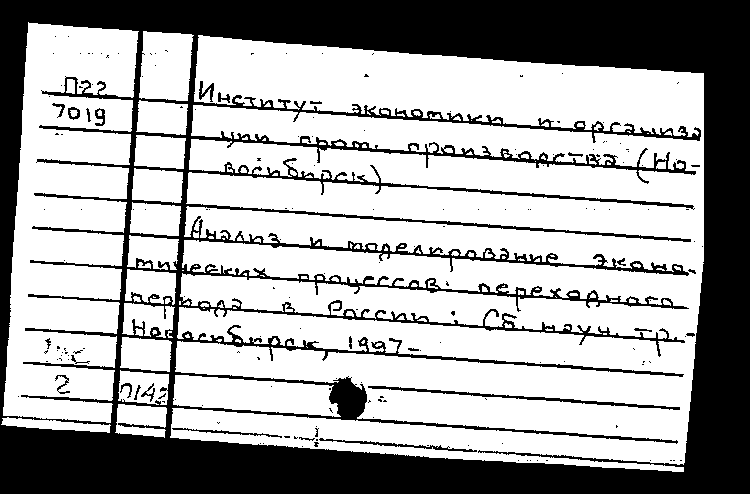 П22
7019
Институт экономики и организа
ции пром. производства (Но-
восибирск)
Анализ и моделирование эконо-
мических процессов переходного
периода в России : Сб. науч. тр.-
Новосибирск, 1997-
2
П142